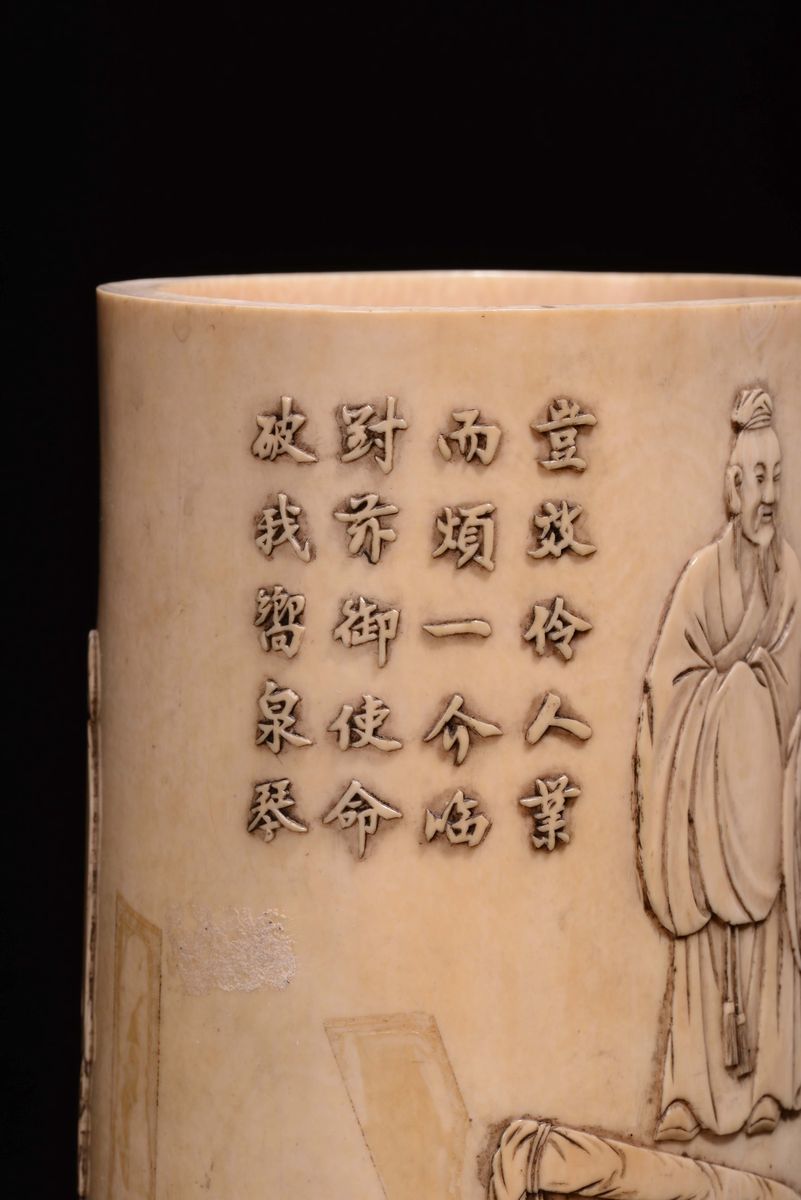 豈效伶人業
而煩一介臨
對苏御使命
破我嚮泉琴